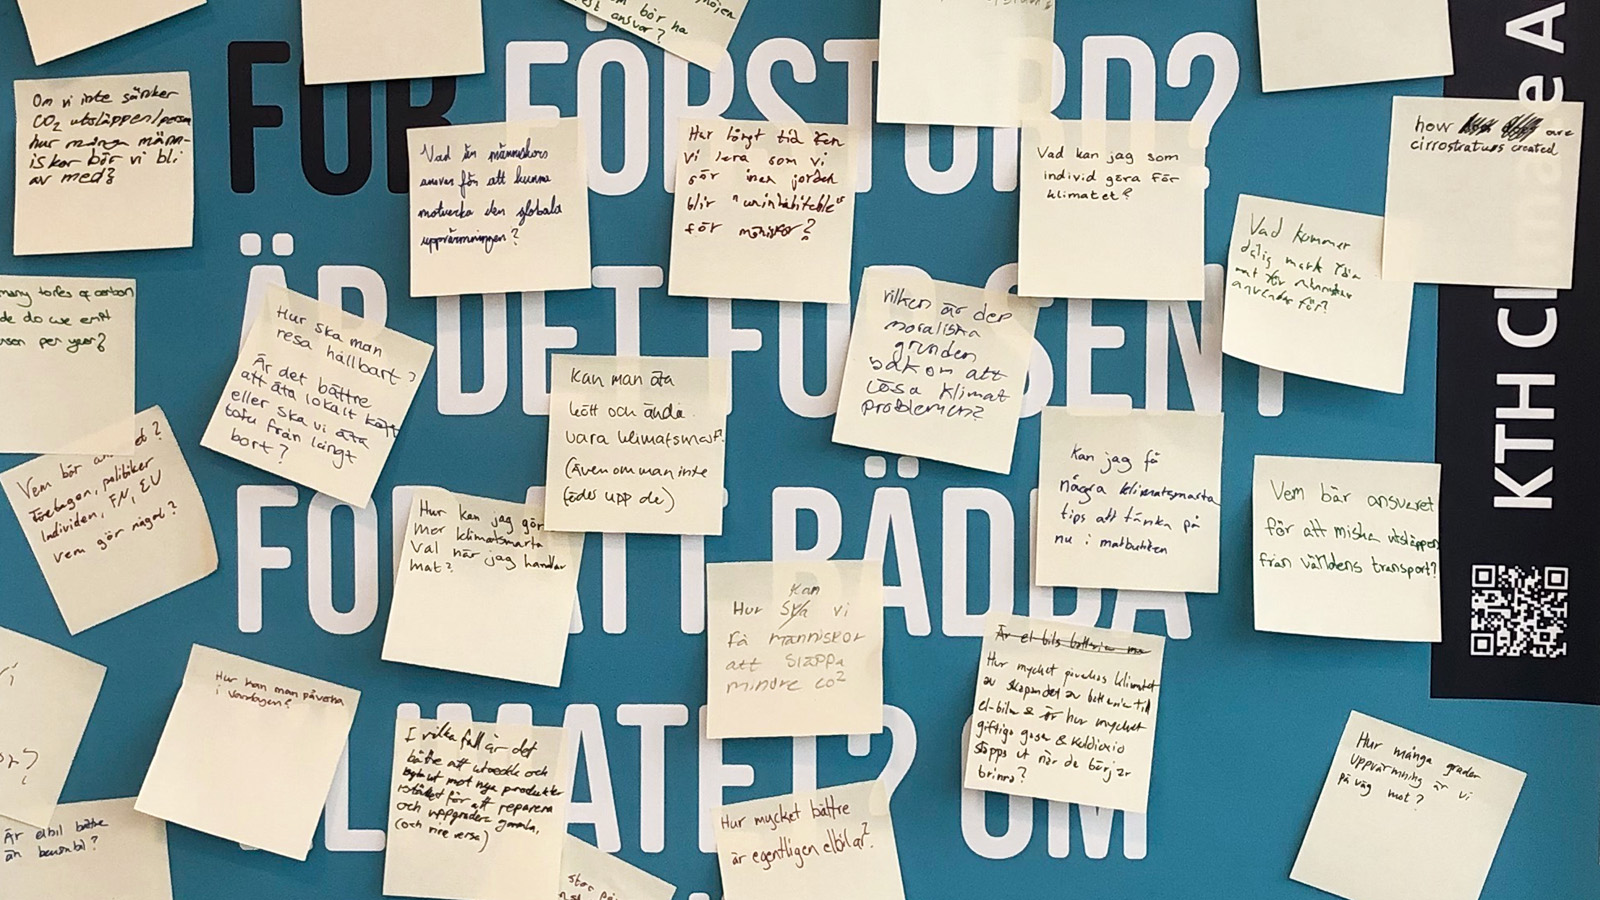 est ansvar?
bör ha
Om vi inte sänker
CO₂ utsläppen/person
hur många männ-
iskor bör vi bli
av med?
FÖR FÖRSTÖRD?
Vad är människors
ansvar för att kunna
motverka den globala
uppvärmningen?
Hur långt tid kan
vi leva som vi
gör innan jorden
blir "uninhabitable"
för människor?
Vad kan jag som
individ göra för
klimatet?
how are
cirrostratus created
Vad kommer
dålig mark
använder för?
many tonnes of carbon
de do we emit
rson per year?
ÄR DET FÖR SENT
Hur ska man
resa hållbart?
Är det bättre
att äta lokalt kött
eller ska vi äta
tofu från långt
bort?
Kan man äta
kött och ändå
vara klimatsmart?
(Även om man inte
föder upp de)
vilken är den
moraliska
grunden
bakom att
lösa klimat
problemen?
Kan jag få
några klimatsmarta
tips att tänka på
nu i matbutiken
Vem bär ansvaret
för att minska utsläppen
från världens transport?
Vem bör
företagen, politiker
individen, FN, EU
vem gör något?
Hur kan jag gör
mer klimatsmarta
val när jag handlar
mat?
FÖR ATT RÄDDA
kan
Hur ska vi
få människor
att släppa
mindre co²
Är el bils batterier
Hur mycket påverkas klimatet
av skapandet av batterier till
el-bilar & är hur mycket
giftiga gaser & koldioxid
släpps ut när de börjar
brinna?
Hur kan man påverka
i vardagen?
I vilka fall är det
bättre att utveckla och
byta ut mot nya produkter
istället för att reparera
och uppgradera gamla,
(och vice versa)
KLIMATET? OM
Hur mycket bättre
är egentligen elbilar?
Hur många grader
uppvärmning är vi
på väg mot?
Är elbil bättre
än bensinbil?
KTH Climate A